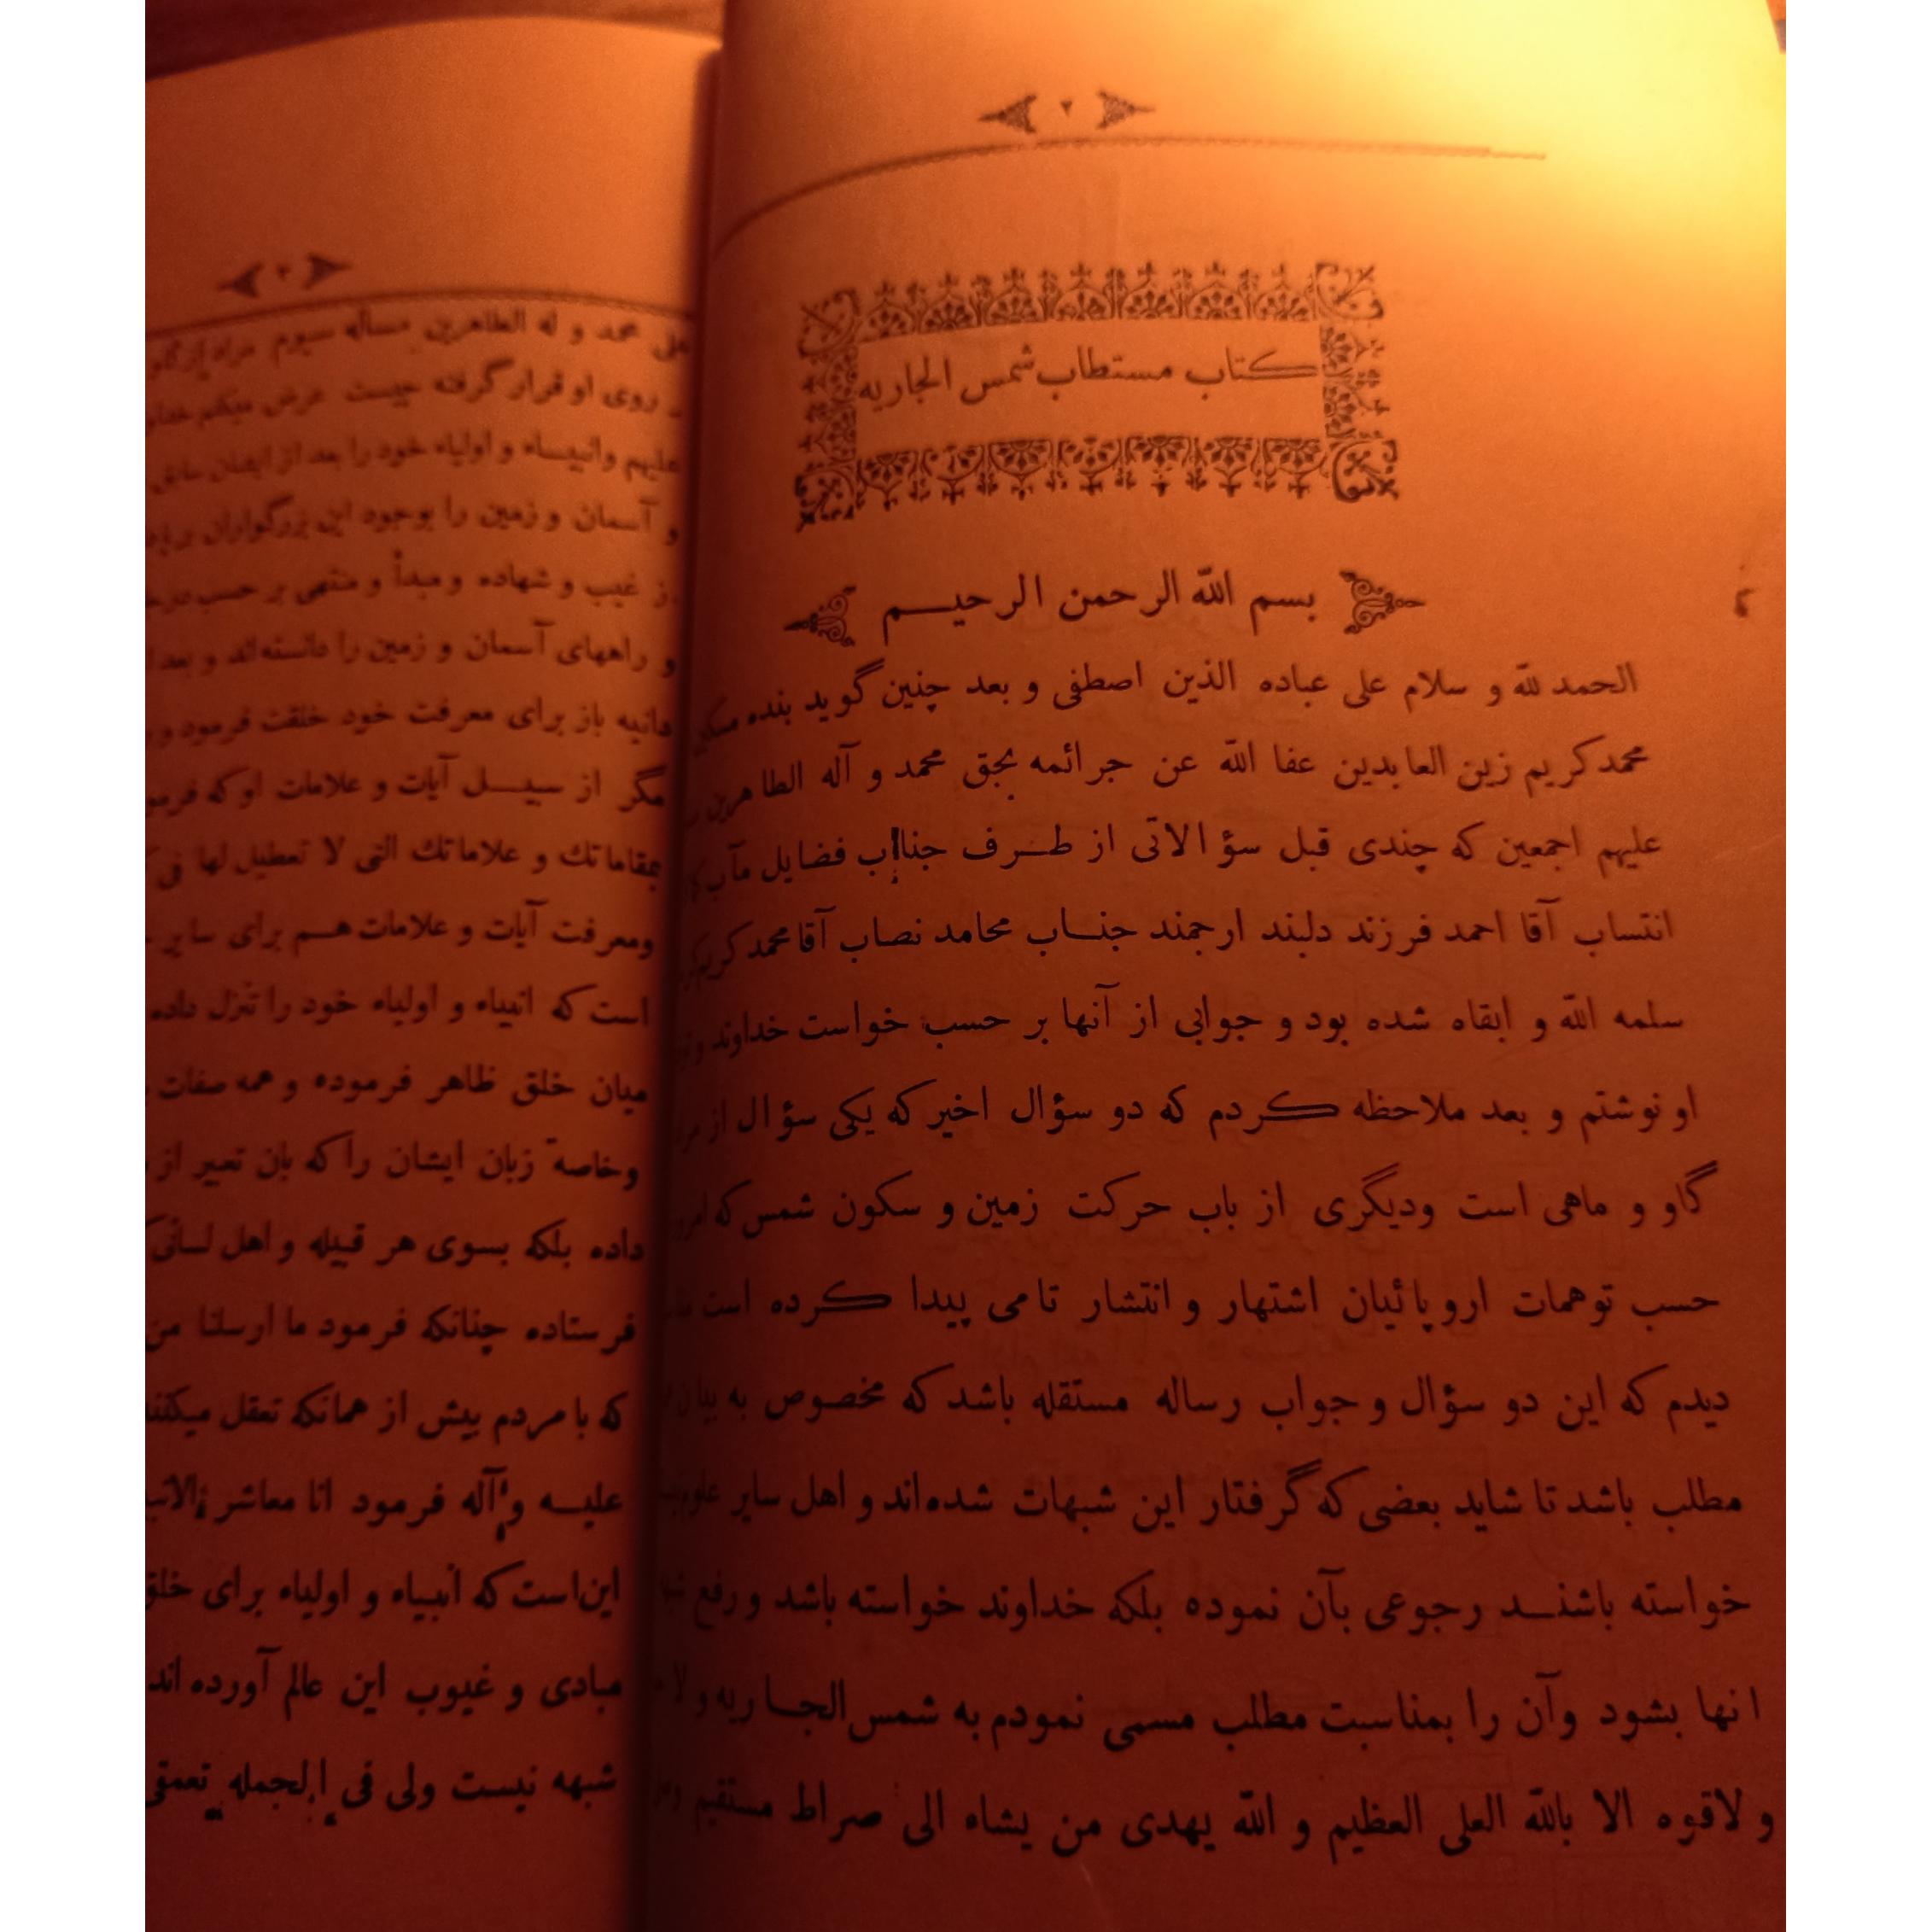 ۲
كتاب مستطاب شمس الجاریه
بسم الله الرحمن الرحیم
الحمد لله و سلام علی عباده الذین اصطفی و بعد چنین گوید بنده
محمدكریم زین العابدین عفا الله عن جرائمه بحق محمد و آله الطاهرین
علیهم اجمعین كه چندی قبل سؤالاتی از طرف جنااب فضایل مآب
انتساب آقا احمد فرزند دلبند ارجمند جناب محامد نصاب آقا محمد كریم
سلمه الله و ابقاه شده بود و جوابی از آنها بر حسب خواست خداوند
او نوشتم و بعد ملاحظه كردم كه دو سؤال اخیر كه یكی سؤال از
گاو و ماهی است ودیگری از باب حركت زمین و سكون شمس كه
حسب توهمات اروپائیان اشتهار و انتشار تامی پیدا كرده است
دیدم كه این دو سؤال و جواب رساله مستقله باشد كه مخصوص به
مطلب باشد تا شاید بعضی كه گرفتار این شبهات شده‌اند و اهل سایر
خواسته باشند رجوعی بآن نموده بلكه خداوند خواسته باشد و رفع
انها بشود وآن را بمناسبت مطلب مسمی نمودم به شمس الجاریه و لا
و لاقوه الا بالله العلی العظیم و الله یهدی من یشاء الی صراط مستقیم
۳
محمد و له الطاهرین مسأله سیوم
روی او قرار گرفته چیست عرض میكنم
علیهم وانبیاء و اولیاء خود را بعد از ایشان
و آسمان و زمین را بوجود این بزرگواران
از غیب و شهاده و مبدأ و منتهی بر حسب
و راههای آسمان و زمین را دانسته‌اند و بعد
دانیه باز برای معرفت خود خلقت فرمود و
مگر از سبیل آیات و علامات او كه
بمقاماتك و علاماتك التی لا تعطیل لها فی
ومعرفت آیات و علامات هم برای سایر
است كه انبیاء و اولیاء خود را تنزل داده
میان خلق ظاهر فرموده و همه صفات
وخاصة زبان ایشان را كه بان تعبیر از
داده بلكه بسوی هر قبیله و اهل لسانی
فرستاده چنانكه فرمود ما ارسلنا من
كه با مردم بیش از همانكه تعقل میكنند
علیه و آله فرمود انا معاشر
این‌است كه انبیاء و اولیاء برای خلق
مبادی و غیوب این عالم آورده اند
شبهه نیست ولی فی الجمله تعمق